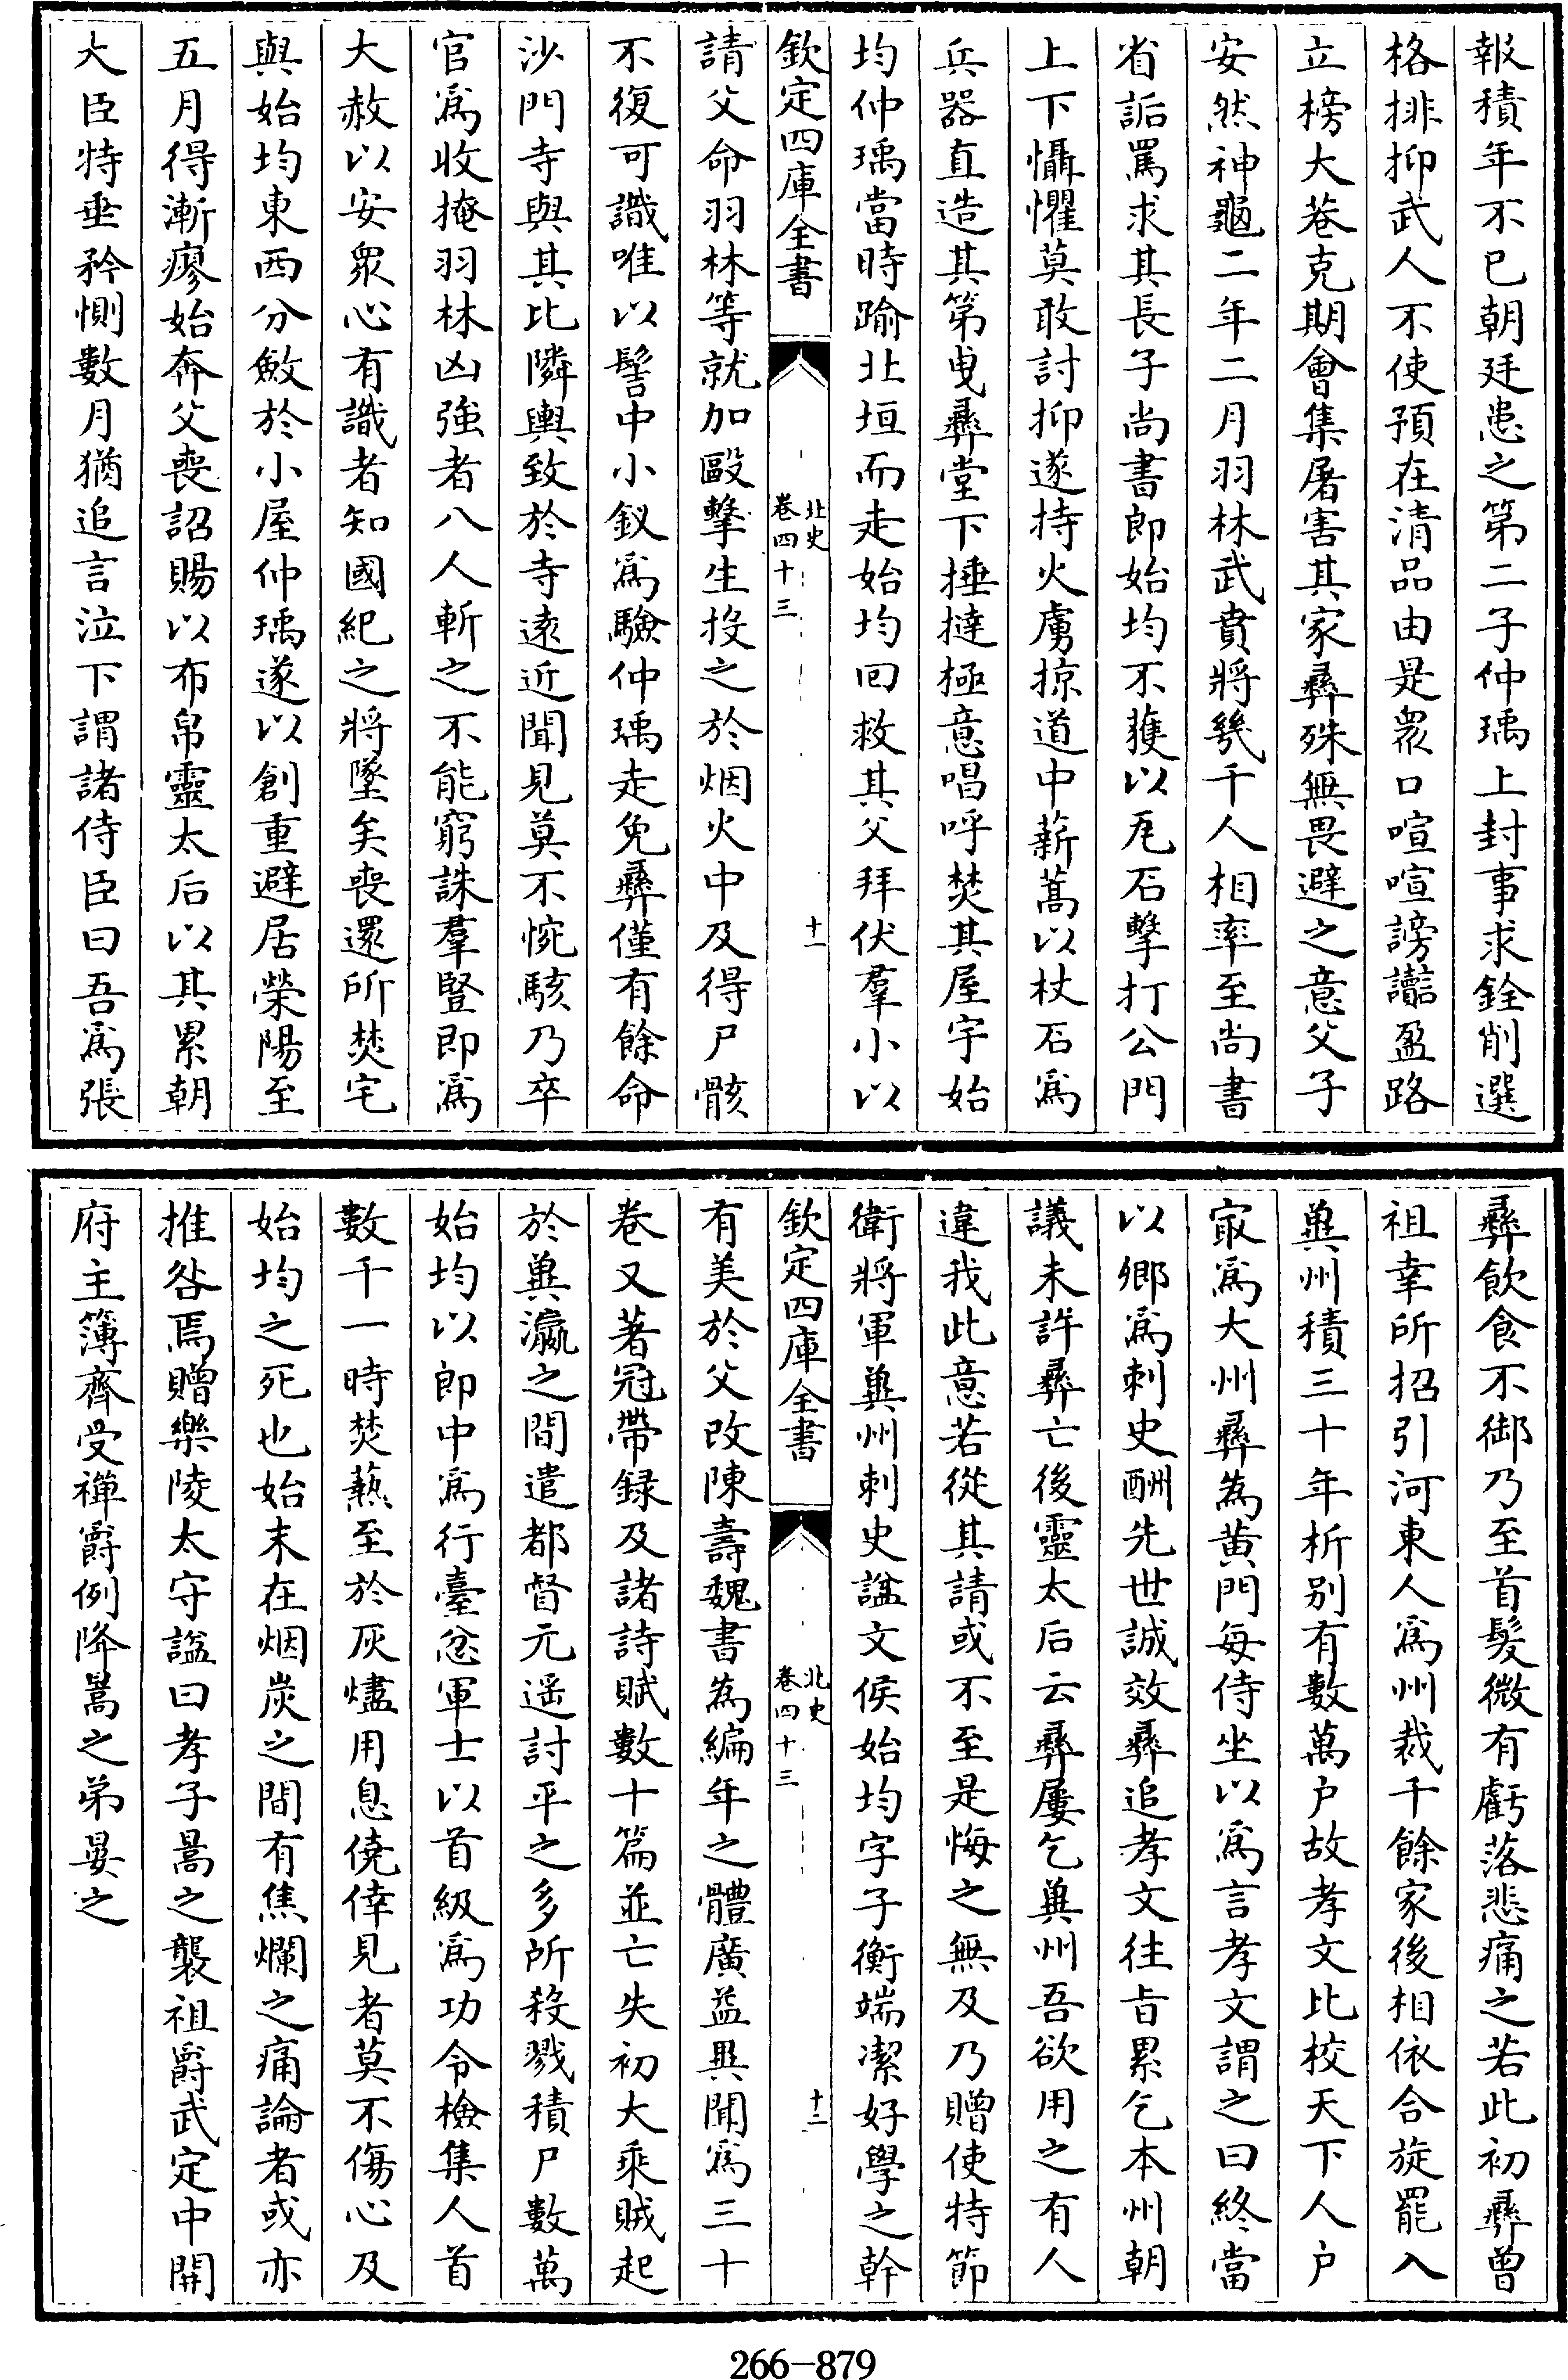 報積年不已朝廷患之第二子仲瑀上封事求銓削選
格排抑武人不使預在清品由是衆口喧喧謗讟盈路
立榜大巷克期會集屠害其家彝殊無畏避之意父子
安然神龜二年二月羽林武賁將幾千人相率至尚書
省詬罵求其長子尚書郎始均不獲以瓦石擊打公門
上下懾懼莫敢討抑遂持火虜掠道中薪蒿以杖石爲
兵器直造其第曳彝堂下捶撻極意唱呼焚其屋宇始
均仲瑀當時踰北垣而走始均回救其父拜伏羣小以
欽定四庫全書
北史
卷四十三
十一
請父命羽林等就加毆擊生投之於烟火中及得尸骸
不復可識唯以髻中小釵爲驗仲瑀走免彝僅有餘命
沙門寺與其比隣輿致於寺遠近聞見莫不惋駭乃卒
官爲收掩羽林凶強者八人斬之不能窮誅羣豎即爲
大赦以安衆心有識者知國紀之將墜矣喪還所焚宅
與始均東西分斂於小屋仲瑀遂以創重避居榮陽至
五月得漸瘳始奔父喪詔賜以布帛靈太后以其累朝
大臣特垂矜惻數月猶追言泣下謂諸侍臣曰吾爲張
彝飲食不御乃至首髮微有虧落悲痛之若此初彝曾
祖幸所招引河東人爲州裁千餘家後相依合旋罷入
冀州積三十年析别有數萬户故孝文比校天下人户
㝡爲大州彝為黄門每侍坐以爲言孝文謂之曰終當
以卿爲刺史酬先世誠效彝追孝文往旨累乞本州朝
議未許彝亡後靈太后云彝屢乞冀州吾欲用之有人
違我此意若從其請或不至是悔之無及乃贈使持節
衛將軍冀州刺史諡文侯始均字子衡端潔好學之幹
欽定四庫全書
北史
卷四十三
十二
有美於父改陳壽魏書為編年之體廣益異聞爲三十
卷又著冠帶録及諸詩賦數十篇並亡失初大乘賊起
於冀瀛之間遣都督元遥討平之多所殺戮積尸數萬
始均以郎中爲行臺忿軍士以首級爲功令檢集人首
數千一時焚爇至於灰燼用息僥倖見者莫不傷心及
始均之死也始末在烟炭之間有焦爛之痛論者或亦
推咎焉贈樂陵太守諡曰孝子暠之襲祖爵武定中開
府主簿齊受禪爵例降暠之弟晏之
266-879